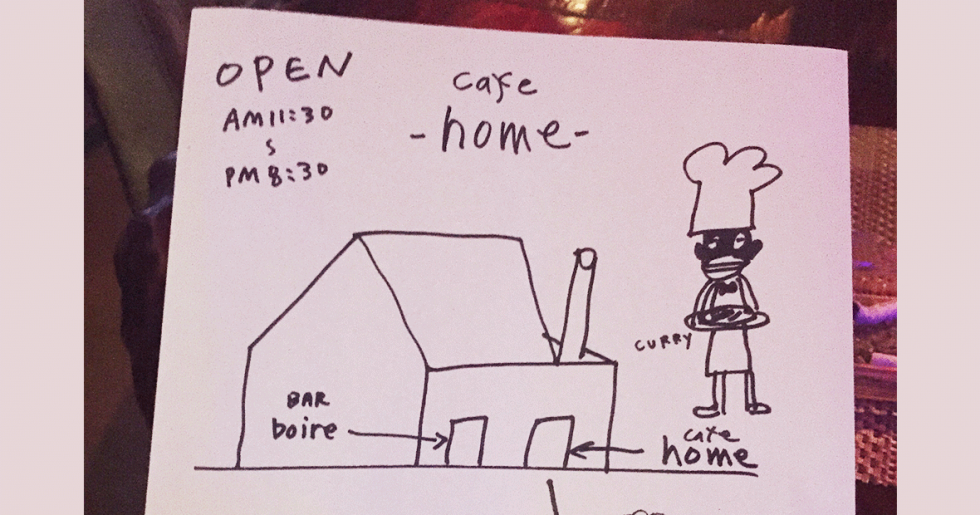 OPEN
AM11:30
S
PM8:30
cafe
-home-
CURRY
BAR
boire
cafe
home